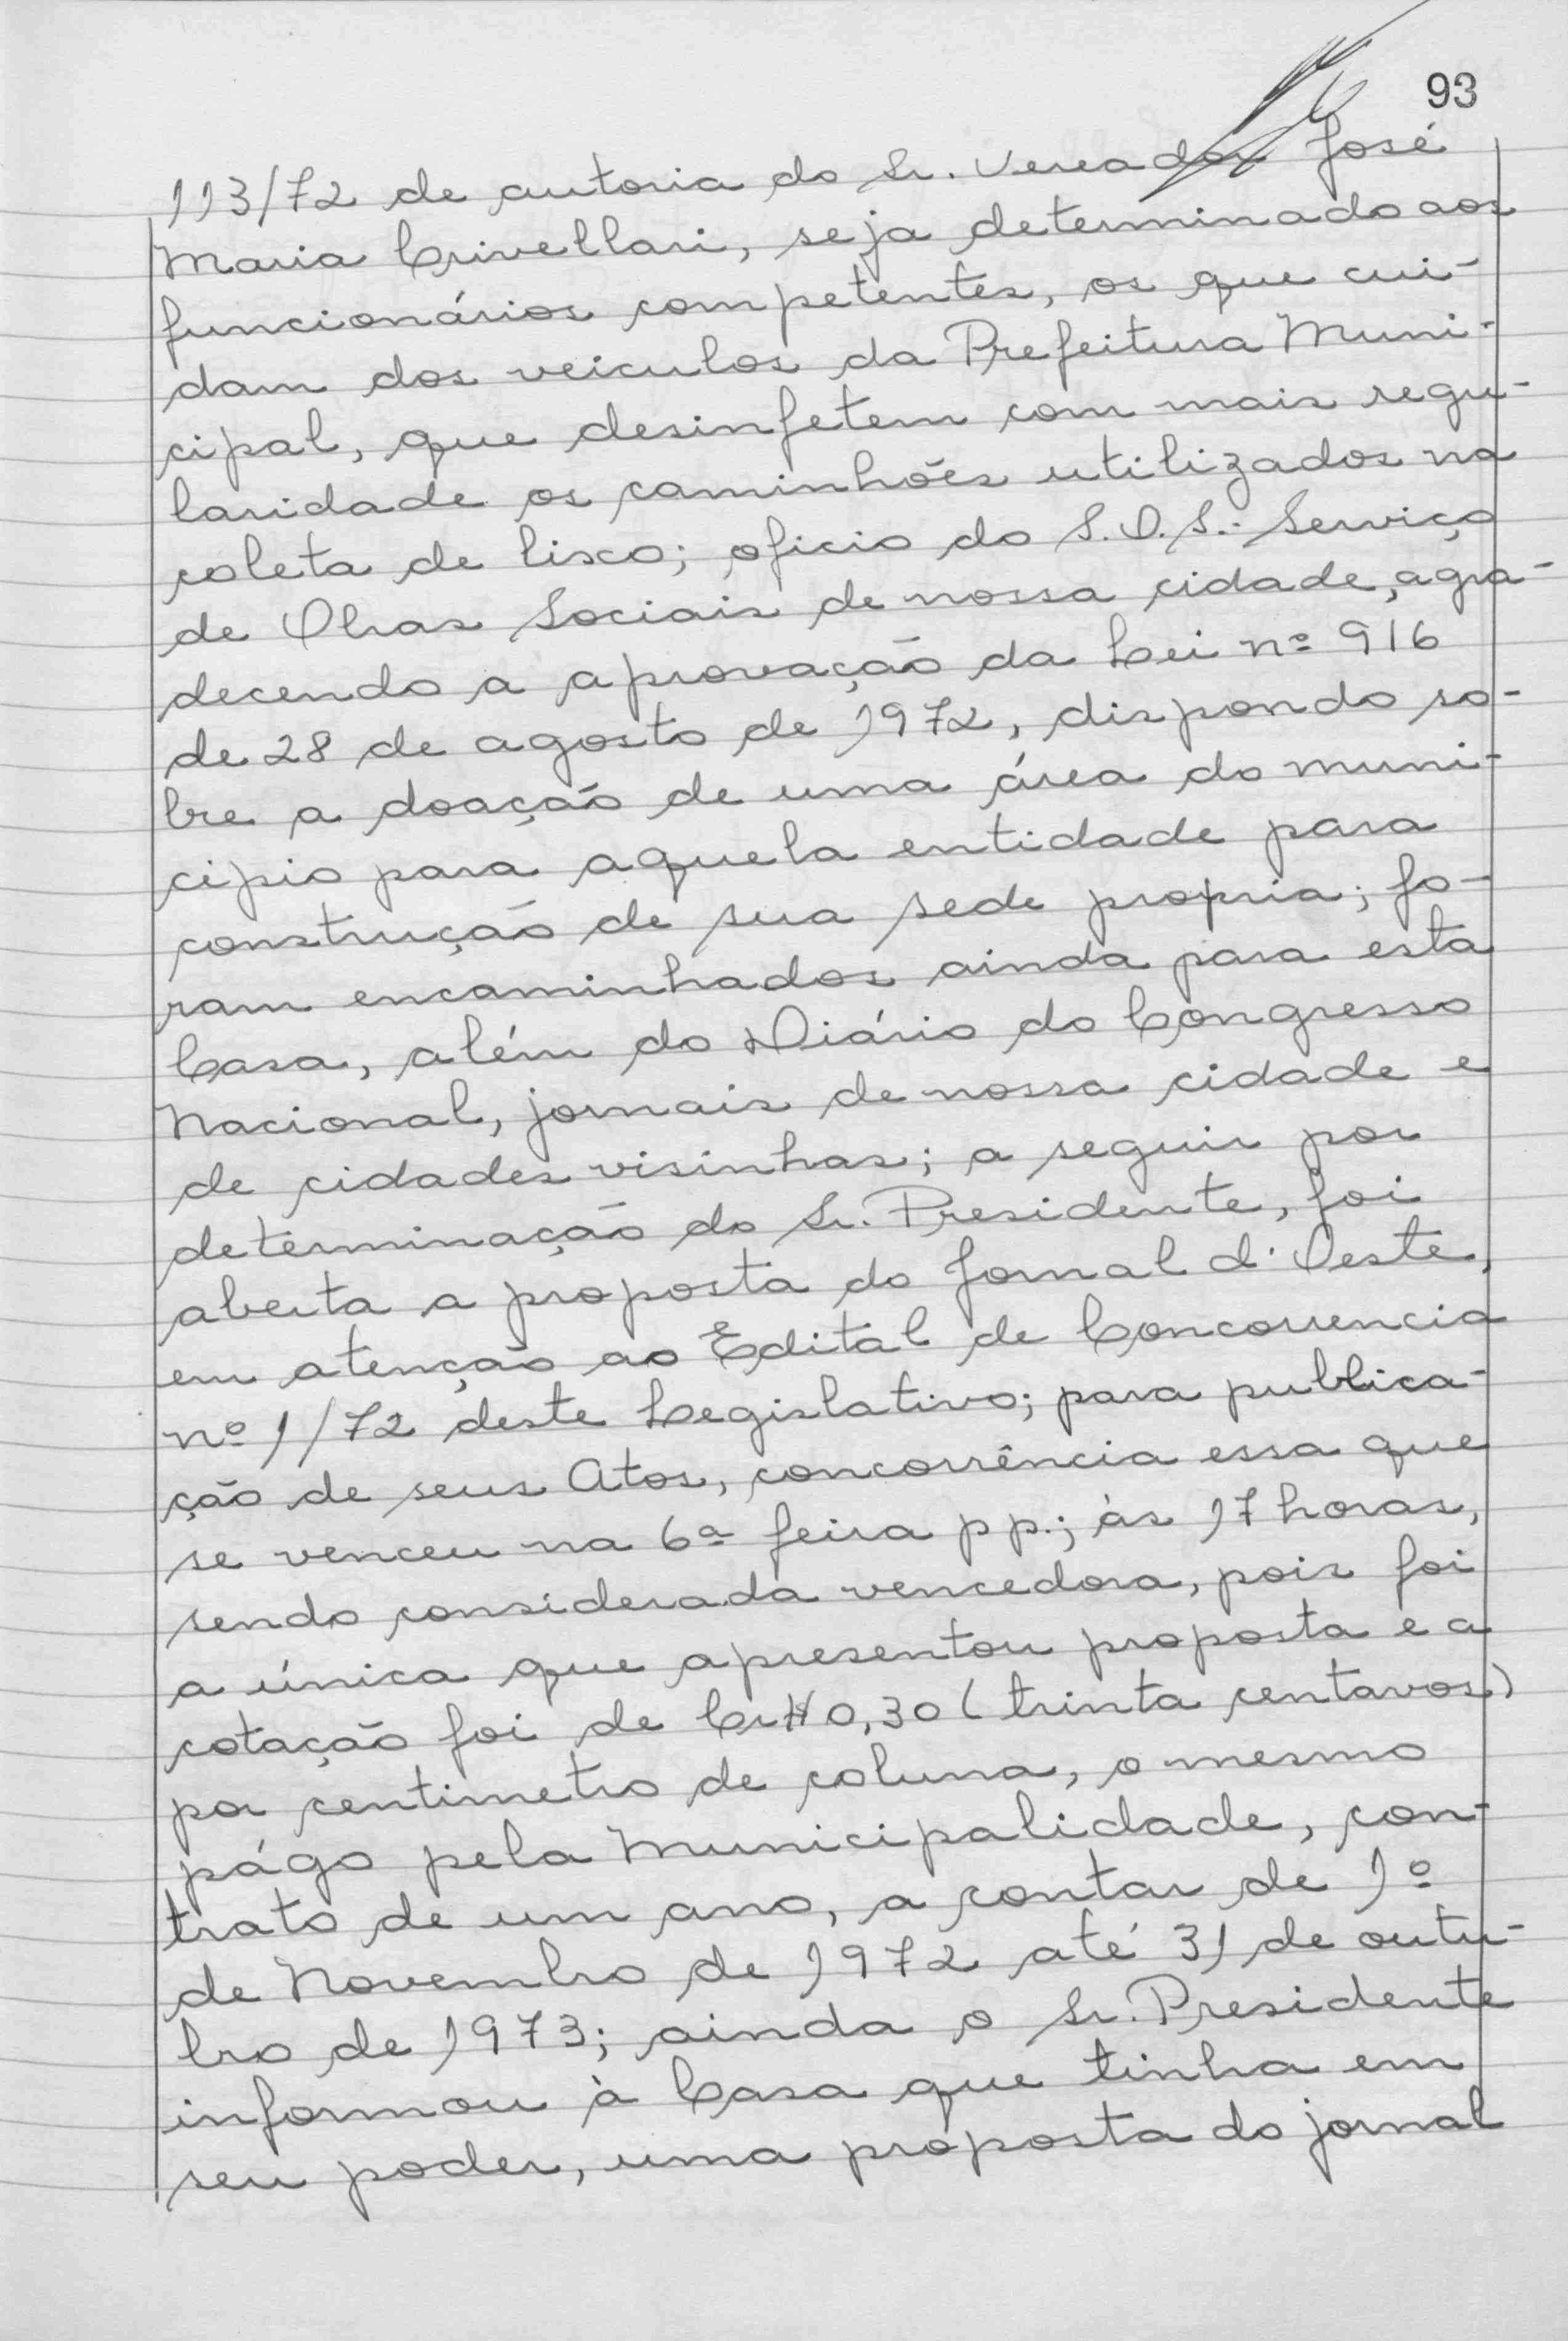 93
113/72 de autoria do Sr. Vereador José
Maria Crivellari, seja determinado aos
funcionários competentes, os que cui-
dam dos veiculos da Prefeitura Muni-
cipal, que desinfetem com mais regu-
laridade os caminhões utilizados na
coleta de lixo; oficio do S.O.S.: Serviço
de Obras Sociais de nossa cidade, agra-
decendo a aprovação da Lei nº 916
de 28 de agosto de 1972, dispondo so-
bre a doação de uma área do muni-
cipio para aquela entidade para
construção de sua sede propria; fo-
ram encaminhados ainda para esta
Casa, além do Diário do Congresso
Nacional, jornais de nossa cidade e
de cidades visinhas; a seguir por
determinação do Sr. Presidente, foi
aberta a proposta do Jornal d'Oeste,
em atenção ao Edital de Concorrencia
nº 1/72 deste Legislativo; para publica-
ção de seus Atos, concorrência essa que
se venceu na 6ª feira pp.; às 17 horas,
sendo considerada vencedora, pois foi
a única que apresentou proposta e a
cotação foi de Cr$ 0,30 (trinta centavos)
por centimetro de coluna, o mesmo
págo pela Municipalidade, con-
trato de um ano, a contar de 1º
de Novembro de 1972 até 31 de outu-
bro de 1973; ainda o Sr. Presidente
informou à Casa que tinha em
seu poder, uma proposta do jornal